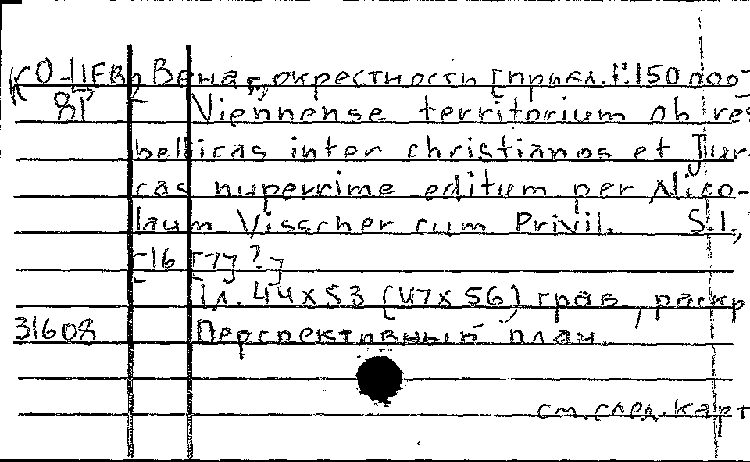 КО-11/ЕВр Вена, окрестности [прибл. 1:150 000
8Р Viennense territorium ob res
bellicas inter christianos et Tur-
cas nuperrime editum per Nico-
laum Visscher cum Privil. S.l.,
[16 [7?] ?]
1л. 44x53 (47x56) грав., раскр
31608 Перспективный план.
см. след. карт